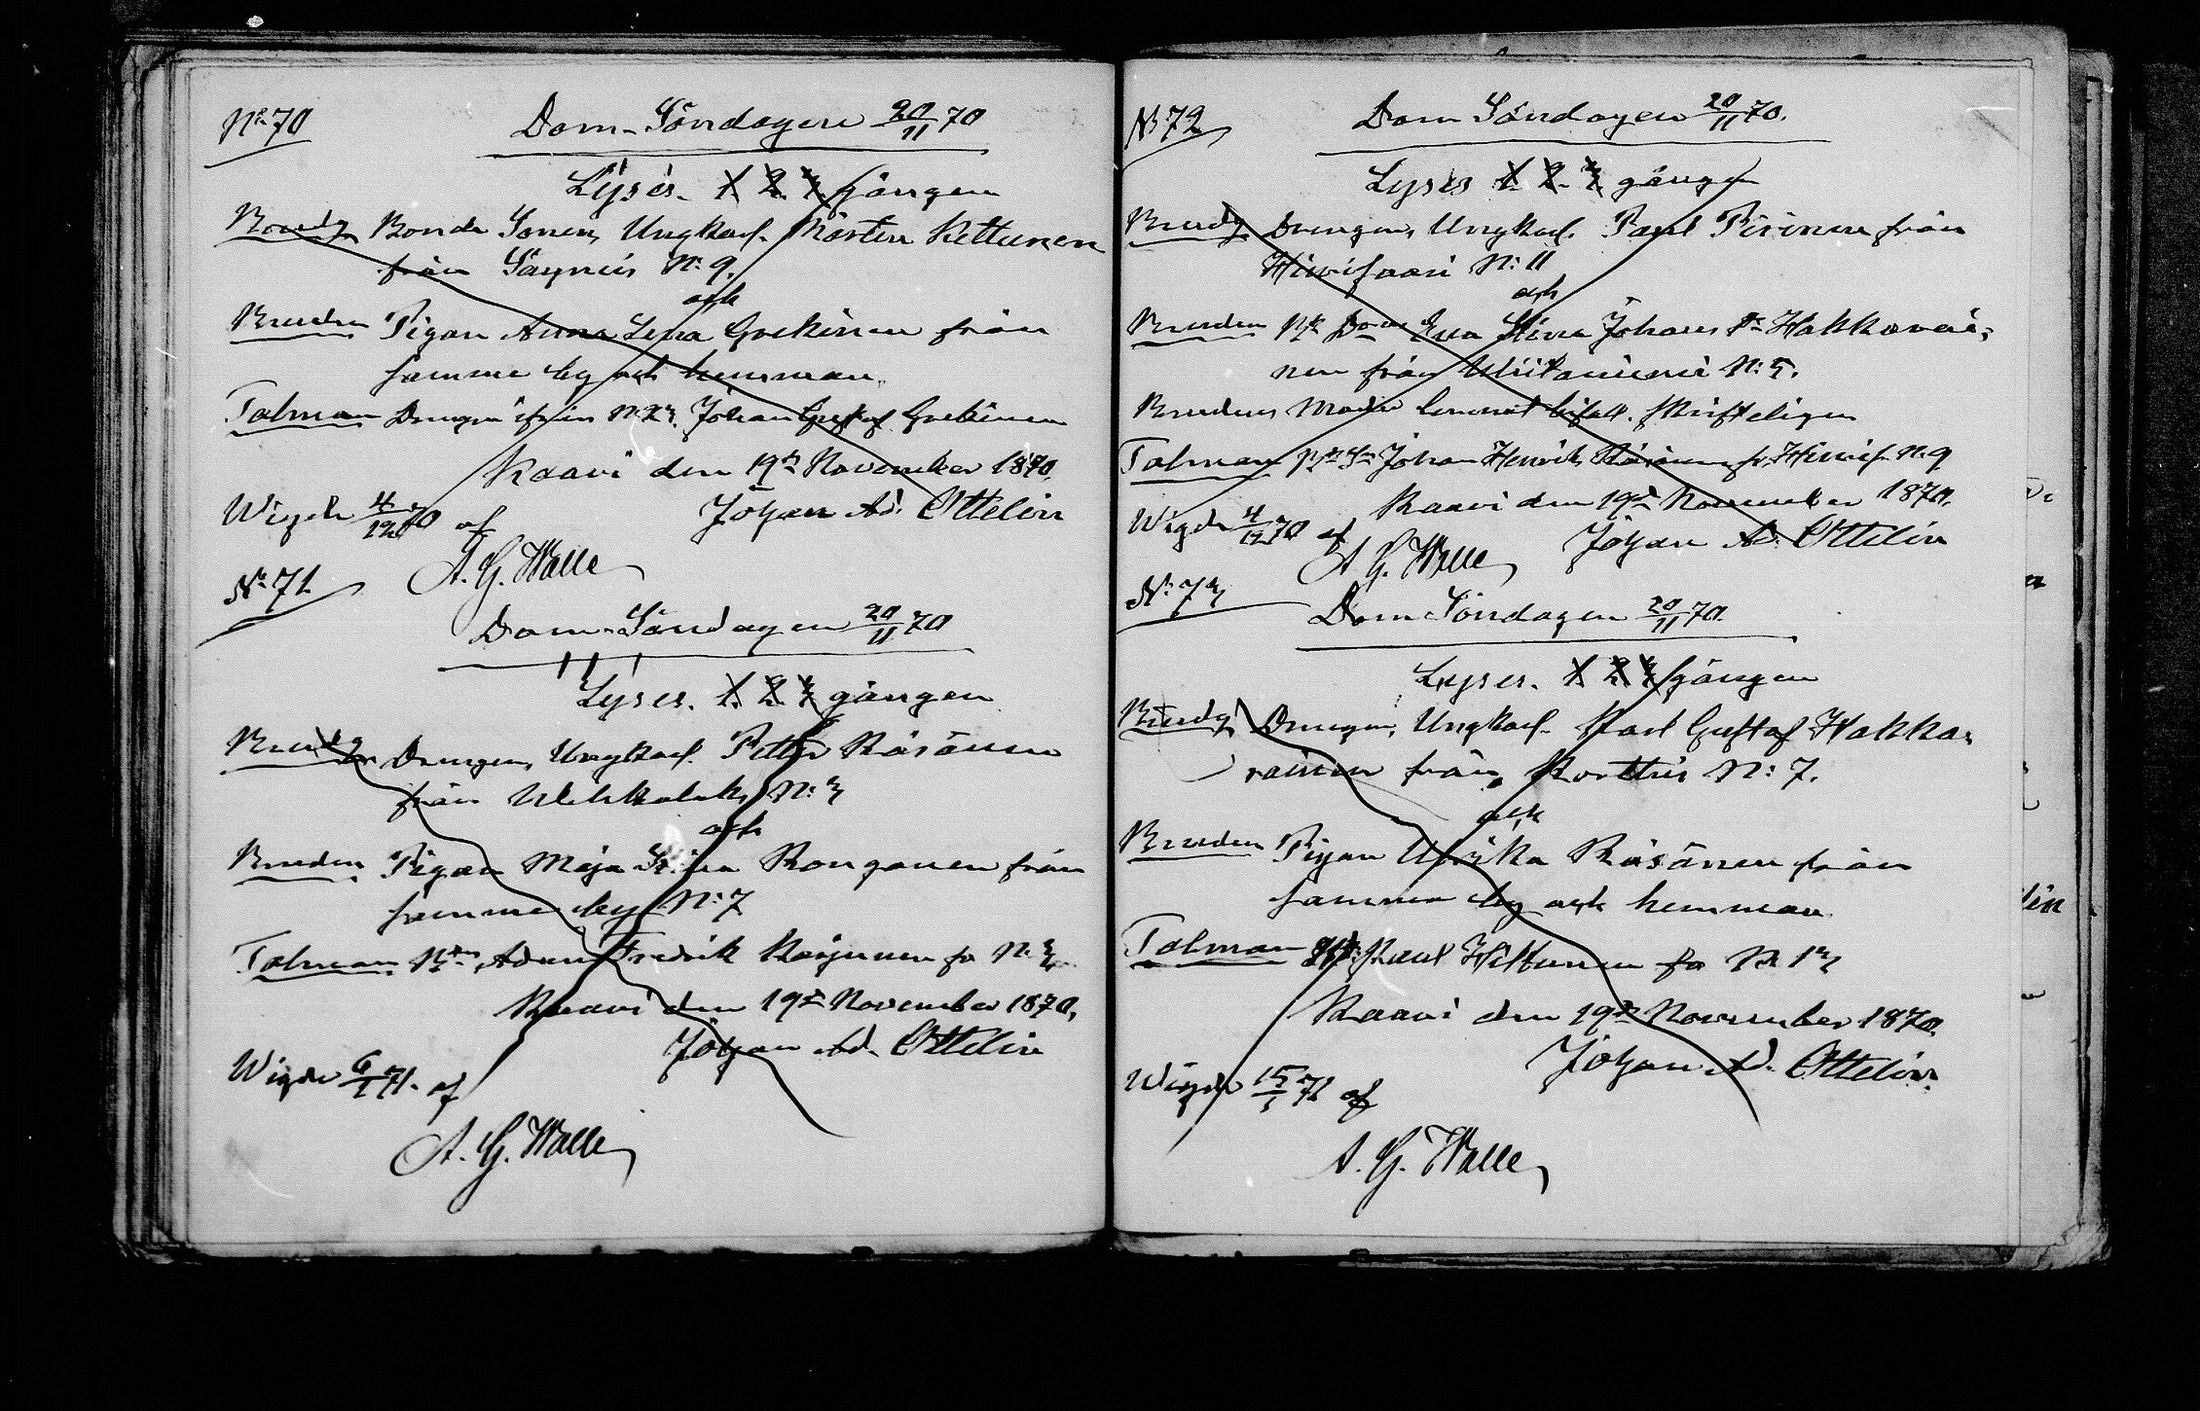 No 70
Dom-Söndagen 20/11 70
Lyses. 1. 2. 3 gången
Brudg. Bonde Sonen, Ungkarl. Mårten Kettunen
från Säyneis N: 9.
och
Bruden Pigan Anna Lena Goekinen från
samma by och hemman.
Talman Drengen ifrån N: 23. Johan Gustaf
Kaavi den 19de November 1870.
Johan Ad. Ottelin
Wigde 4/12 70 af
A. G. Walle
No 71.
Dom-Söndagen 20/11 70
Lyses. 1. 2. 3 gången
Brudg. Drengen, Ungkarl. Petter Räsänen
från N: 3
och
Bruden Pigan Maja Stina Konganen från
samma by N: 7
Talman Adam Fredrik fr N: 3
Kaavi den 19de November 1870.
Johan Ad. Ottelin
Wigde 6/1 71. af
A. G. Walle
No 72
Dom Söndagen 20/11 70.
Lyses 1. 2. 3 gången
Brudg. Drengen, Ungkarl. Paul Pirinen från
Hirvisaari N: 11
och
Bruden Eva Stina Johans Dr Hakkarai-
nen från N: 5.
Brudens Moder bifall. skrifteligen
Talman Johan Henrik Räsänen fr. Hirvis. N: 9
Kaavi den 19de November 1870.
Johan Ad. Ottelin
Wigde 4/12 70 af
A. G. Walle
No 73
Dom Söndagen 20/11 70.
Lyses. 1. 2. 3 gången
Brudg. Drengen, Ungkarl. Karl Gustaf Hakka-
rainen från Kortteis N: 7.
och
Bruden Pigan Ulrika Räsänen från
samma by och hemman.
Talman Paul Hiltunen fr N: 13
Kaavi den 19de November 1870.
Johan Ad. Ottelin.
Wigde 15/1 71 af
A. G. Walle